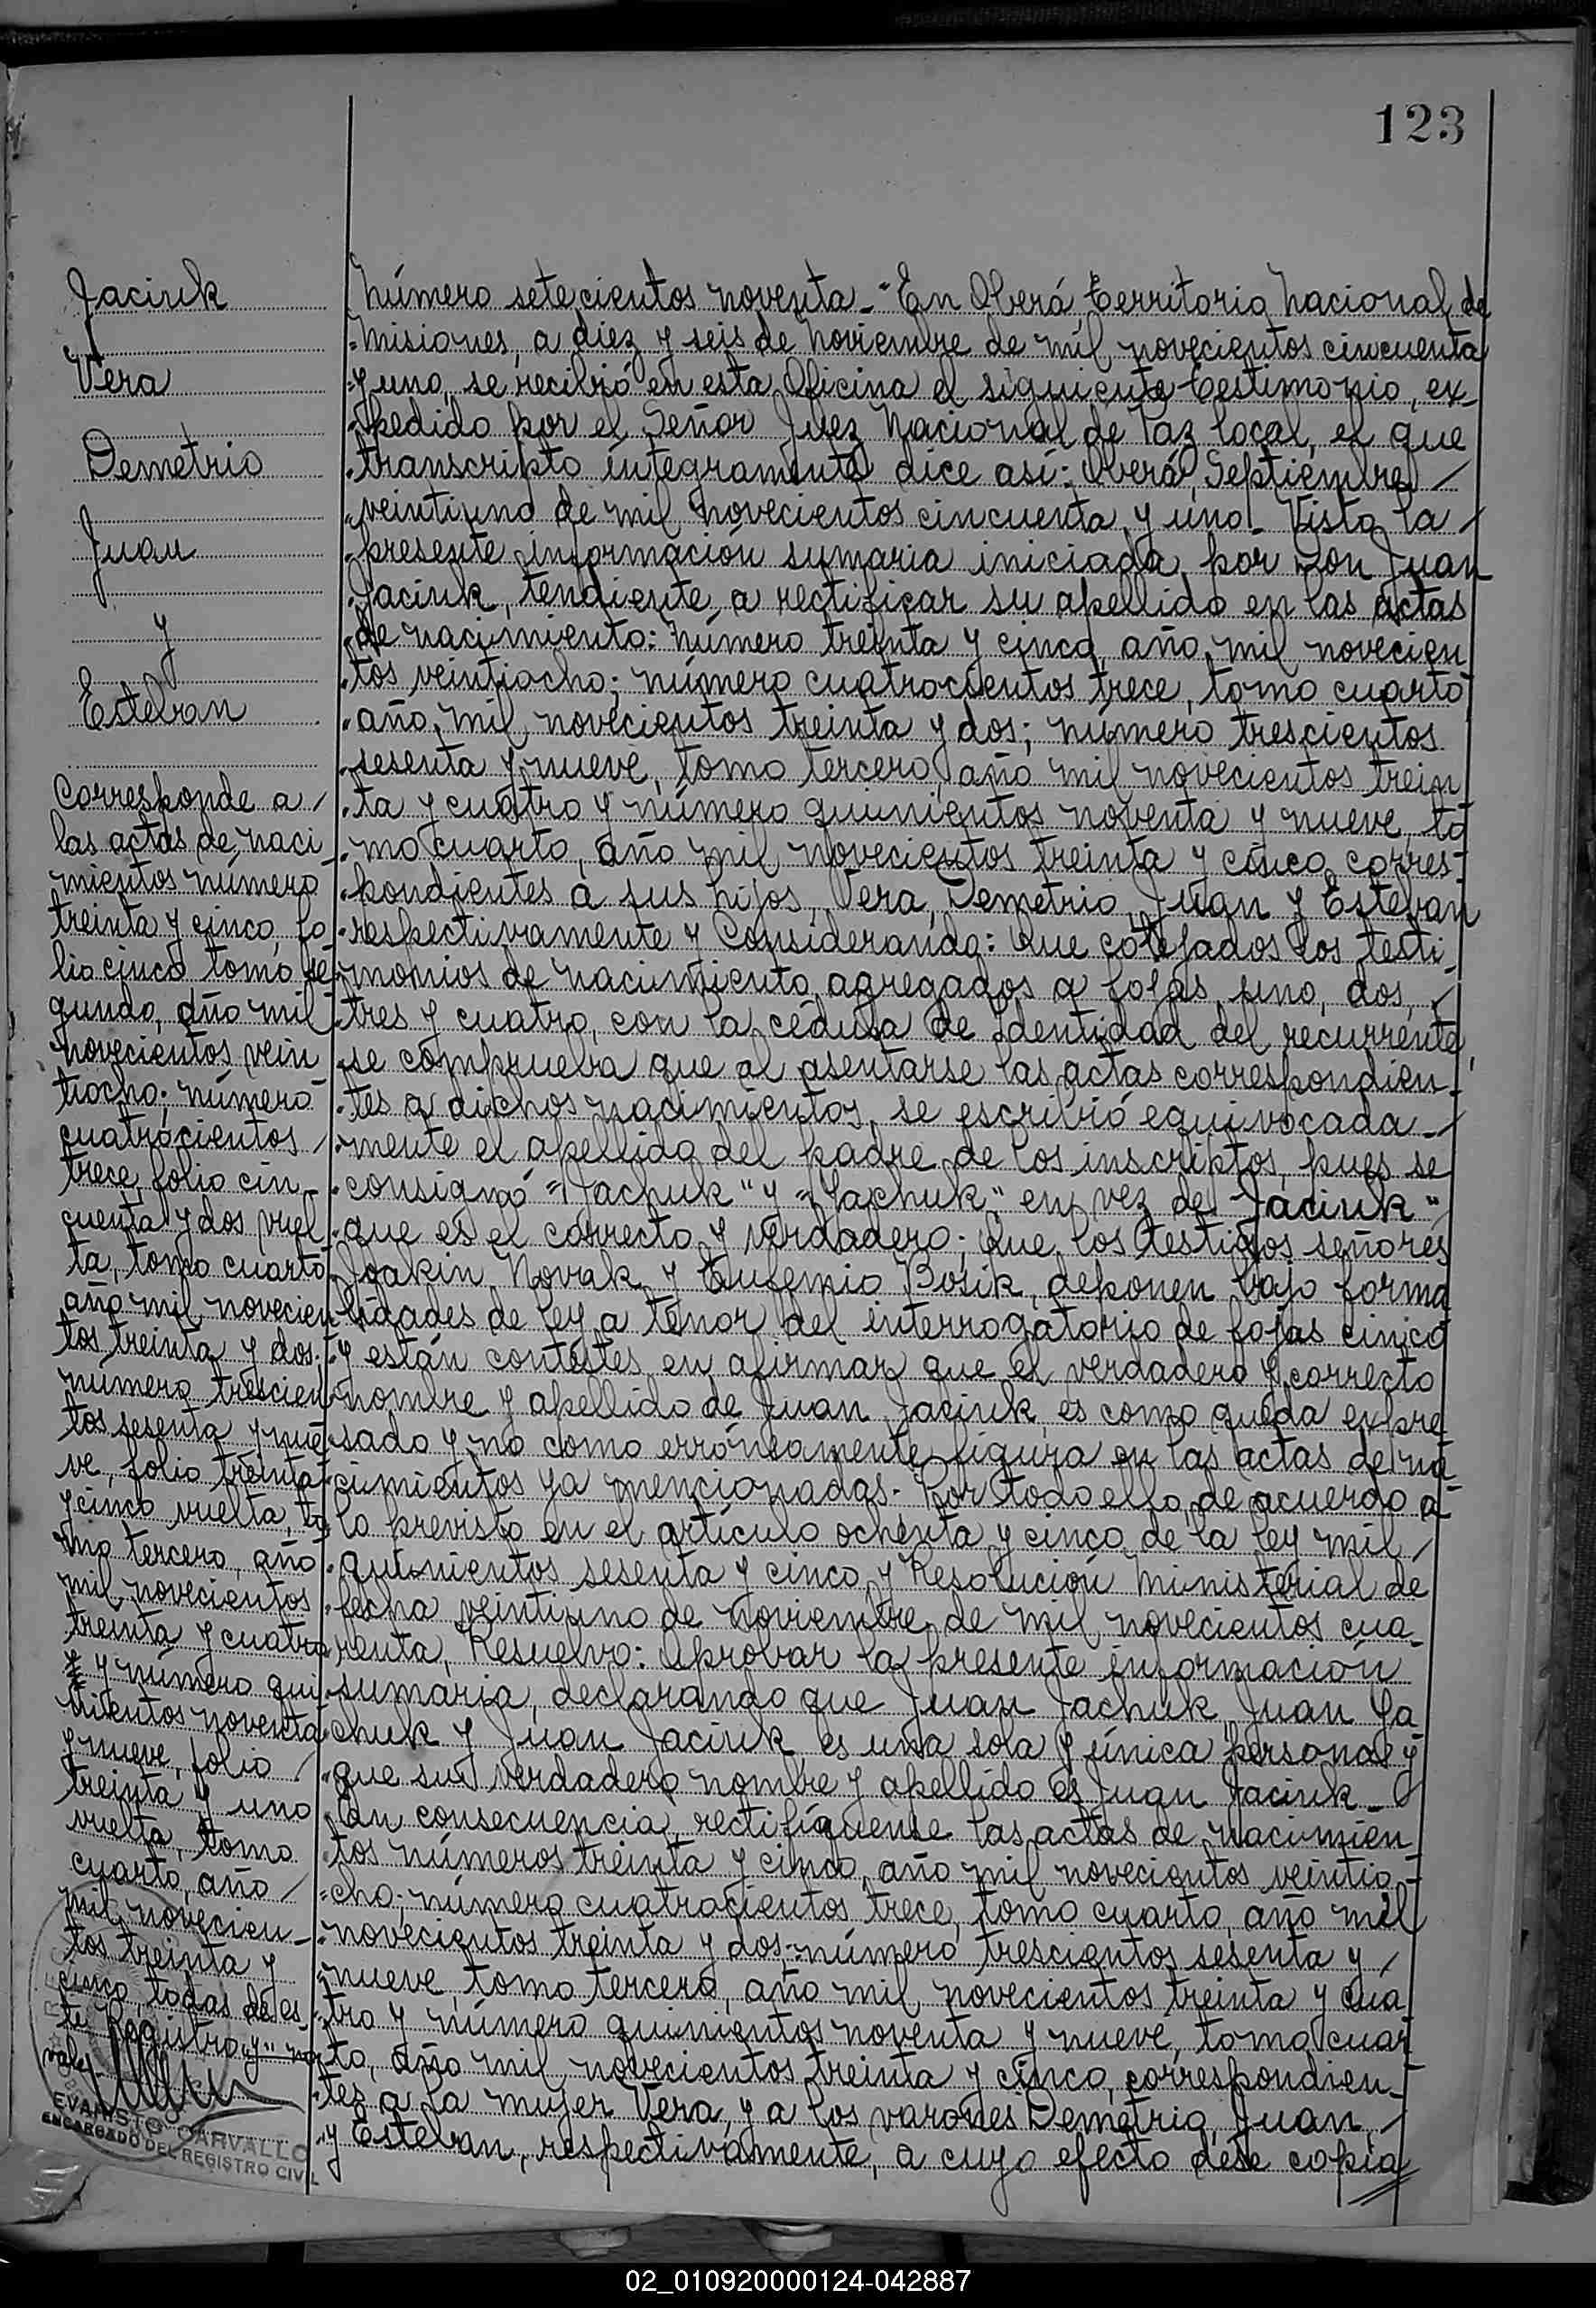 123
Jaciuk
Vera
Demetrio
Juan
y
Esteban
Corresponde a
las actas de naci
mientos número
treinta y cinco, fo
lio cinco tomo se
gundo, año mil
novecientos vein
tiocho; número
cuatrocientos
trece, folio cin-
cuenta y dos vuel
ta, tomo cuarto
año mil novecien
tos treinta y dos;
número trescien
tos sesenta y nue
ve, folio treinta
y cinco vuelta, to
mo tercero, año
mil novecientos
treinta y cuatro
y número qui
nientos noventa
y nueve, folio
treinta y uno
vuelta, tomo
cuarto, año
mil novecien-
tos treinta y
cinco, todas de es-
te Registro "y" no
vale
EVARISTO CARVALLO
ENCARGADO DEL REGISTRO CIVIL
Número setecientos noventa - "En Oberá, Territorio Nacional de
Misiones, a diez y seis de Noviembre de mil novecientos cincuenta
y uno, se recibió en esta Oficina el siguiente Testimonio, ex-
pedido por el Señor Juez Nacional de Paz local, el que
transcripto integramente dice así: Oberá, Septiembre
veintiuno de mil novecientos cincuenta y uno. Vista la
presente información sumaria iniciada por Don Juan
Jaciuk, tendiente a rectificar su apellido en las actas
de nacimiento: número treinta y cinco, año mil novecien
tos veintiocho; número cuatrocientos trece, tomo cuarto
año mil novecientos treinta y dos; número trescientos
sesenta y nueve, tomo tercero, año mil novecientos trein
ta y cuatro y número quinientos noventa y nueve, to
mo cuarto, año mil novecientos treinta y cinco, corres-
pondientes a sus hijos, Vera, Demetrio, Juan y Esteban
respectivamente y Considerando: Que cotejados los testi-
monios de nacimiento agregados a fojas, uno, dos,
tres y cuatro, con la cédula de identidad del recurrente,
se comprueba que al asentarse las actas correspondien-
tes a dichos nacimientos, se escribió equivocada-
mente el apellido del padre de los inscriptos, pues se
consignó "Jachuk" y "Yachuk" en vez de "Jaciuk"
que es el correcto y verdadero; Que los testigos señores
Joakin Novak y Eufemio Bosik, deponen bajo forma
lidades de ley a tenor del interrogatorio de fojas cinco
y están contestes en afirmar que el verdadero y correcto
nombre y apellido de Juan Jaciuk, es como queda expre
sado y no como erróneamente figura en las actas de na
cimientos ya mencionadas. Por todo ello, de acuerdo a
lo previsto en el artículo ochenta y cinco de la ley mil
quinientos sesenta y cinco y Resolución Ministerial de
fecha veintiuno de Noviembre de mil novecientos cua-
renta, Resuelvo: Aprobar la presente información
sumaria, declarando que Juan Jachuk, Juan Ya
chuk y Juan Jaciuk, es una sola y única persona y
que su verdadero nombre y apellido es Juan Jaciuk -
En consecuencia, rectifíquense las actas de nacimien
tos números treinta y cinco, año mil novecientos veintio
cho; número cuatrocientos trece, tomo cuarto, año mil
novecientos treinta y dos; número trescientos sesenta y
nueve, tomo tercero, año mil novecientos treinta y cua
tro y número quinientos noventa y nueve, tomo cuar
to, año mil novecientos treinta y cinco, correspondien-
tes a la mujer Vera, y a los varones Demetrio, Juan,
y Esteban, respectivamente, a cuyo efecto dése copia
02_010920000124-042887